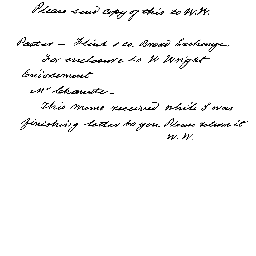 Please send copy of this to W.W.
Pastor — Flint & Co. Broad Exchange.
For enclosure to W Wright
Endorsement
Mr Chanute —
This memo received while I was
finishing letter to you. Please return it
W. W.